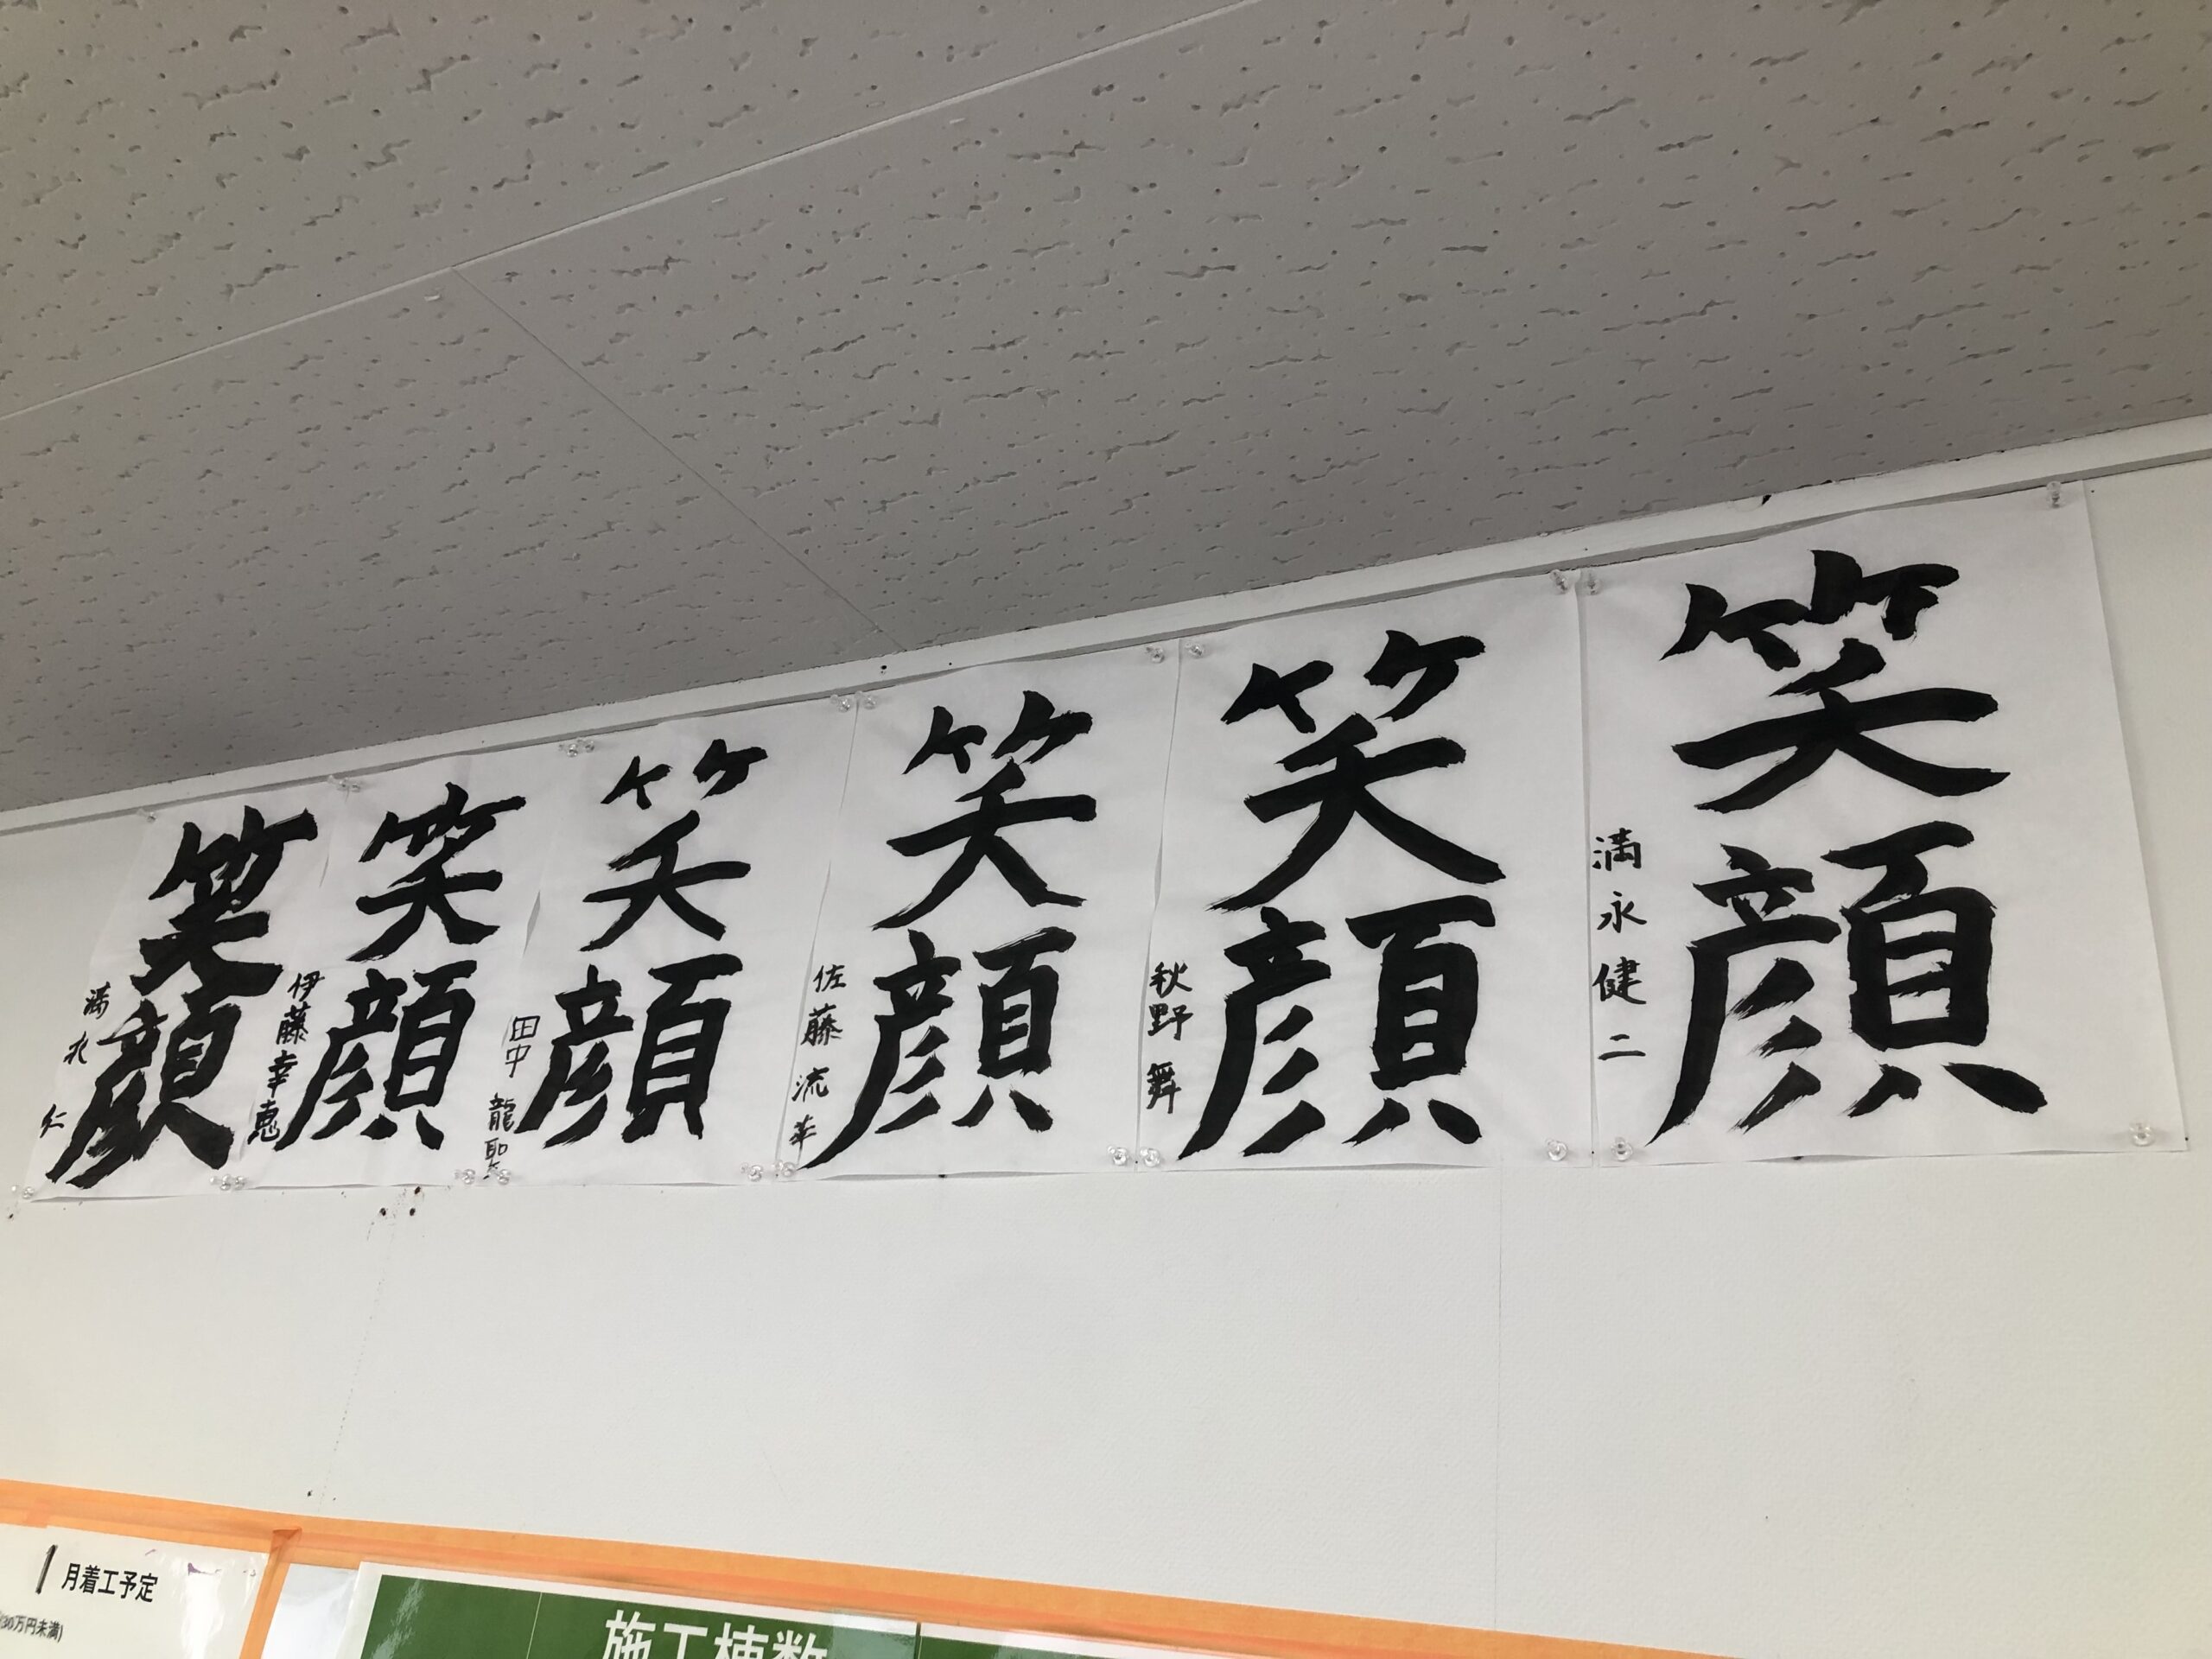 笑顔
満永健二
笑顔
秋野舞
笑顔
佐藤流幸
笑顔
田中龍聖
笑顔
伊藤幸恵
笑顔
満永仁
1月着工予定
万円未満)
施工棟数